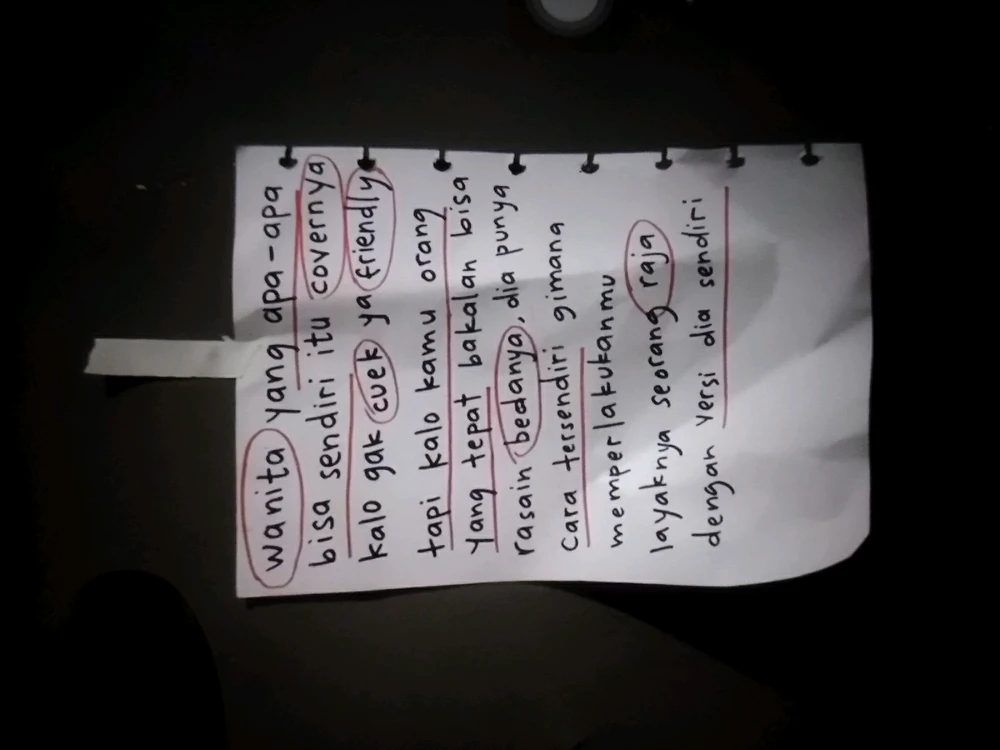 wanita yang apa-apa
bisa sendiri itu covernya
kalo gak cuek ya friendly
tapi kalo kamu orang
yang tepat bakalan bisa
rasain bedanya, dia punya
cara tersendiri gimana
memperlakukanmu
layaknya seorang raja
dengan versi dia sendiri